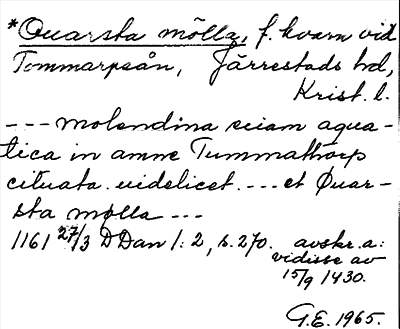 *Quarsta mölla, f. kvarn vid
Tommarpsån, Järrestads hd,
Krist. l.
--- molendina eciam aqua-
tica in amne Tummathorp
cituata. uidelicet. --- et Quar-
sta mølla ---
1161 27/3 DDan 1:2, s. 270. avskr. a:
vidisse av
15/9 1430.
G.E. 1965.